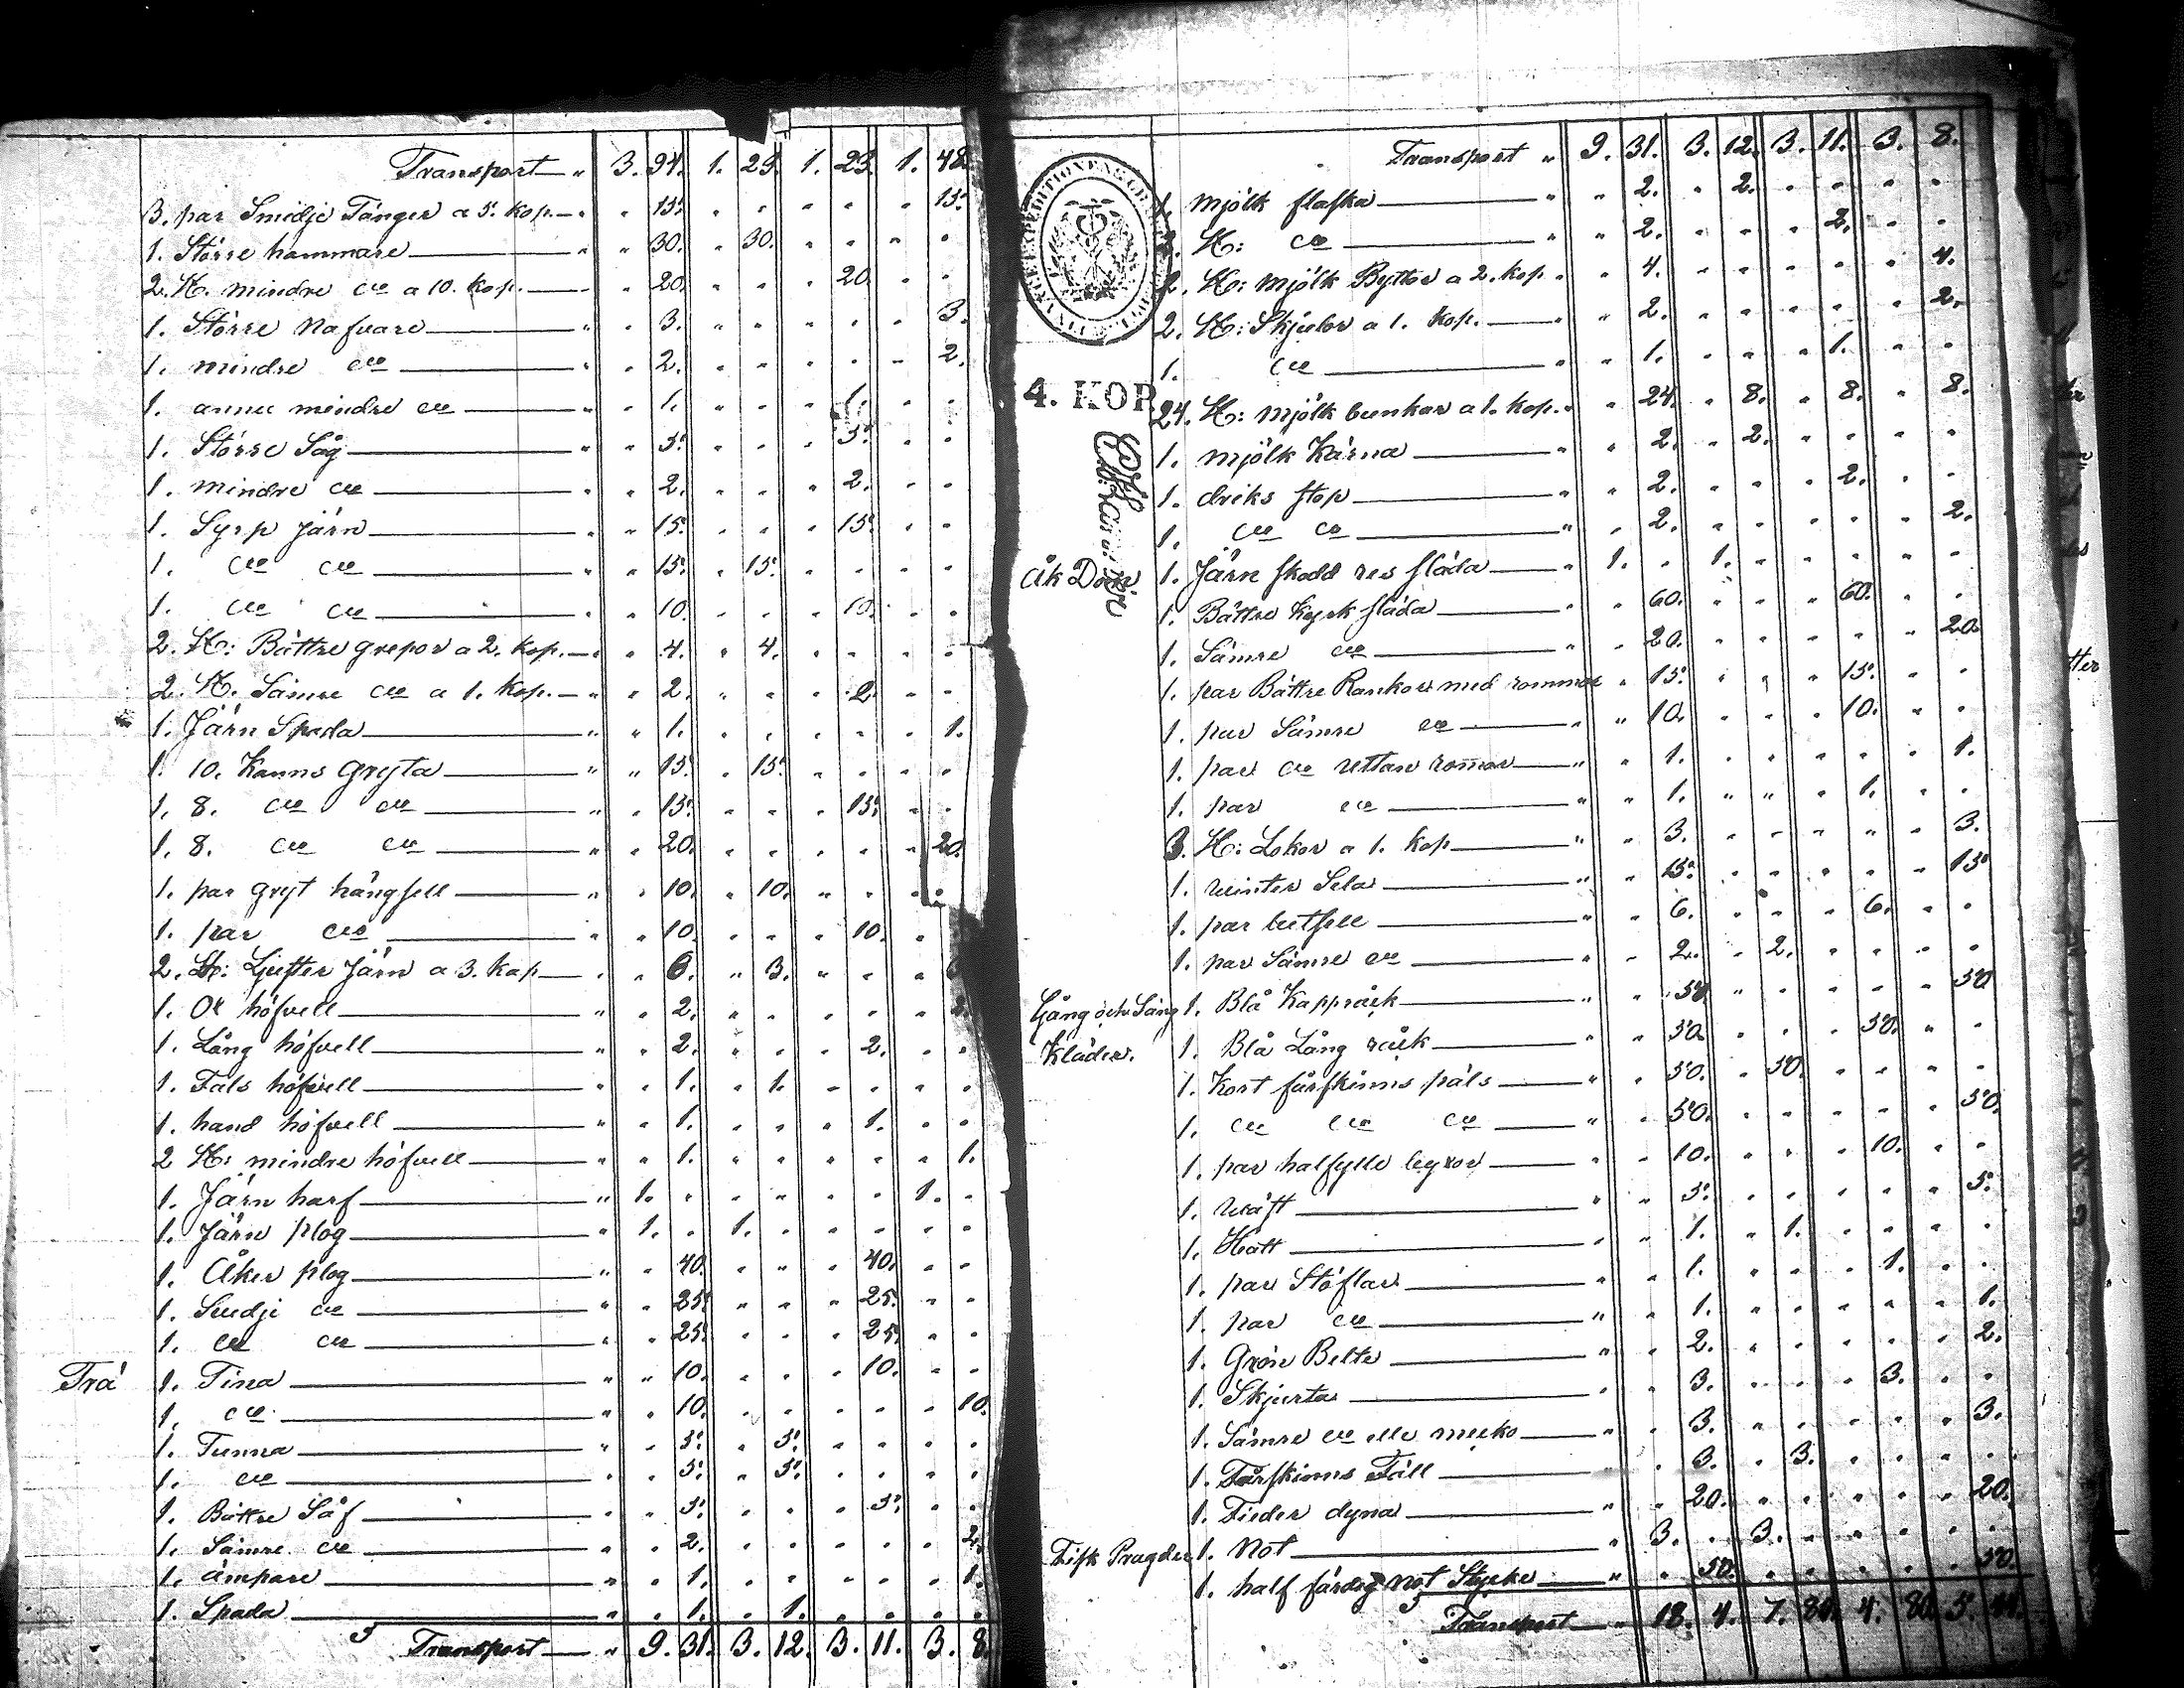 Transport " 3. 94. 1. 23. 1. 23. 1. 48.
3. par Smidje Tänger a 5. kop. " " 15. " " " " " 15.
1. Större hammare " " 30. " 30. " " " "
2. St. mindre do a 10. kop. " " 20. " " " 20. " "
1. Större Nafvare " " 3. " " " " " 3.
1. mindre do " " 2. " " " " " 2.
1. annu mindre do " " 1. " " " 1. " "
1. Större Såg " " 5. " " " 5. " "
1. mindre do " " 2. " " " 2. " "
1. Syrp Järn " " 15. " " " 15. " "
1. do do " " 15. " 15. " " " "
1. do do " " 10. " " " 10. " "
2. St: Bättre grepor a 2. kop. " " 4. " 4. " " " "
2. St. Sämre do a 1. kop. " " 2. " " " 2. " "
1. Järn Spada " " 1. " " " " " 1.
1. 10. Kanns Gryta " " 15. " 15. " " " "
1. 8. do do " " 15. " " " 15. " "
1. 8. do do " " 20. " " " " " 20.
1. par gryt hängsell " " 10. " 10. " " " "
1. par do " " 10. " " " 10. " "
2. St: Ljuster Järn a 3. kop " " 6. " 3. " " "
1. Ok höfvell " " 2. " " " " " 2.
1. Lång höfvell " " 2. " " " 2. " "
1. Fals höfvell " " 1. " 1. " " " "
1. hand höfvell " " 1. " " " 1. " "
2 St: mindre höfvell " " 1. " " " " " 1.
1. Järn harf " 1. " " " " " 1. "
1. Järn plog " 1. " 1. " " " " "
1. Åker plog " " 40. " " " 40. " "
1. Svedje do " " 25. " " " 25. " "
1. do do " " 25. " " " 25. " "
Trä 1. Tina " " 10. " " " 10. " "
1. do " " 10. " " " " " 10.
1. Tunna " " 5. " 5. " " " "
1. do " " 5. " 5. " " " "
1. Bättre Såf " " 5. " " " 5. " "
1. Sämre do " " 2. " " " " " 2.
1. ämpare " " 1. " " " " " 1.
1. Spada " " 1. " 1. " " " "
Transport " 9. 31. 3. 12. 3. 11. 3. 8.
Transport " 9. 31. 3. 12. 3. 11. 3. 8.
1. mjölk flaska " " 2. " 2. " " " "
St: do " " 2. " " " 2. " "
2. St: mjölk Byttor a 2. kop " " 4. " " " " " 4.
2. St: Skjulor a 1. kop. " " 2. " " " " " 2.
1. do " " 1. " " " 1. " "
4. KOP
24. St: mjölk bunkar a 1. kop. " " 24. " 8. " 8. " 8.
1. mjölk Kärna " " 2. " 2. " " " "
1. driks stop " " 2. " " " 2. " "
1. do do " " 2. " " " " " 2.
Åk Don 1. Järn skodd res släda " 1. " 1. " " " " "
1. Bättre kyrk släda " " 60. " " " 60. " "
1. Sämre do " " 20. " " " " " 20.
1. par Bättre Rankor med rommor " 15. " " " 15. " "
1. par Sämre do " " 10. " " " 10. " "
1. par do uttan romor " " 1. " " " " " 1.
1. par do " " 1. " " " 1. " "
3. St: Lokor a 1. kop " " 3. " " " " " 3.
1. winter Sela " " 15. " " " " " 15
1. par betsell " " 6. " " " 6. " "
1. par Sämre do " " 2. " 2. " " " "
Gång och Säng 1. Blå Kapprock " " 50 " " " " " 50
Kläder. 1. Blå Lång råck " " 50. " " " 50. " "
1. Kort fårskinns päls " " 50. " 50. " " " "
1. do do do " " 50. " " " " " 50.
1. par halfylle byxor " " 10. " " " 10. " "
1. wäst " " 5. " " " " " 5.
1. Hatt " " 1. " 1. " " " "
1. par Stöflar " " 1. " " " 1. " "
1. par do " " 1. " " " " " 1.
1. Grön Belte " " 2. " " " " " 2.
1. Skjurta " " 3. " " " 3. " "
1. Sämre do elle mecko " " 3. " " " " " 3.
1. Fårskinns Fäll " " 3. " 3. " " " "
1. Fieder dyna " " 20. " " " " " 20.
Fisk Bragder 1. Not " 3. " 3. " " " " "
1. half färdig not Stycke " " 50. " " " " " 50.
Transport " 18. 4. 7. 80. 4. 80. 5. 44.